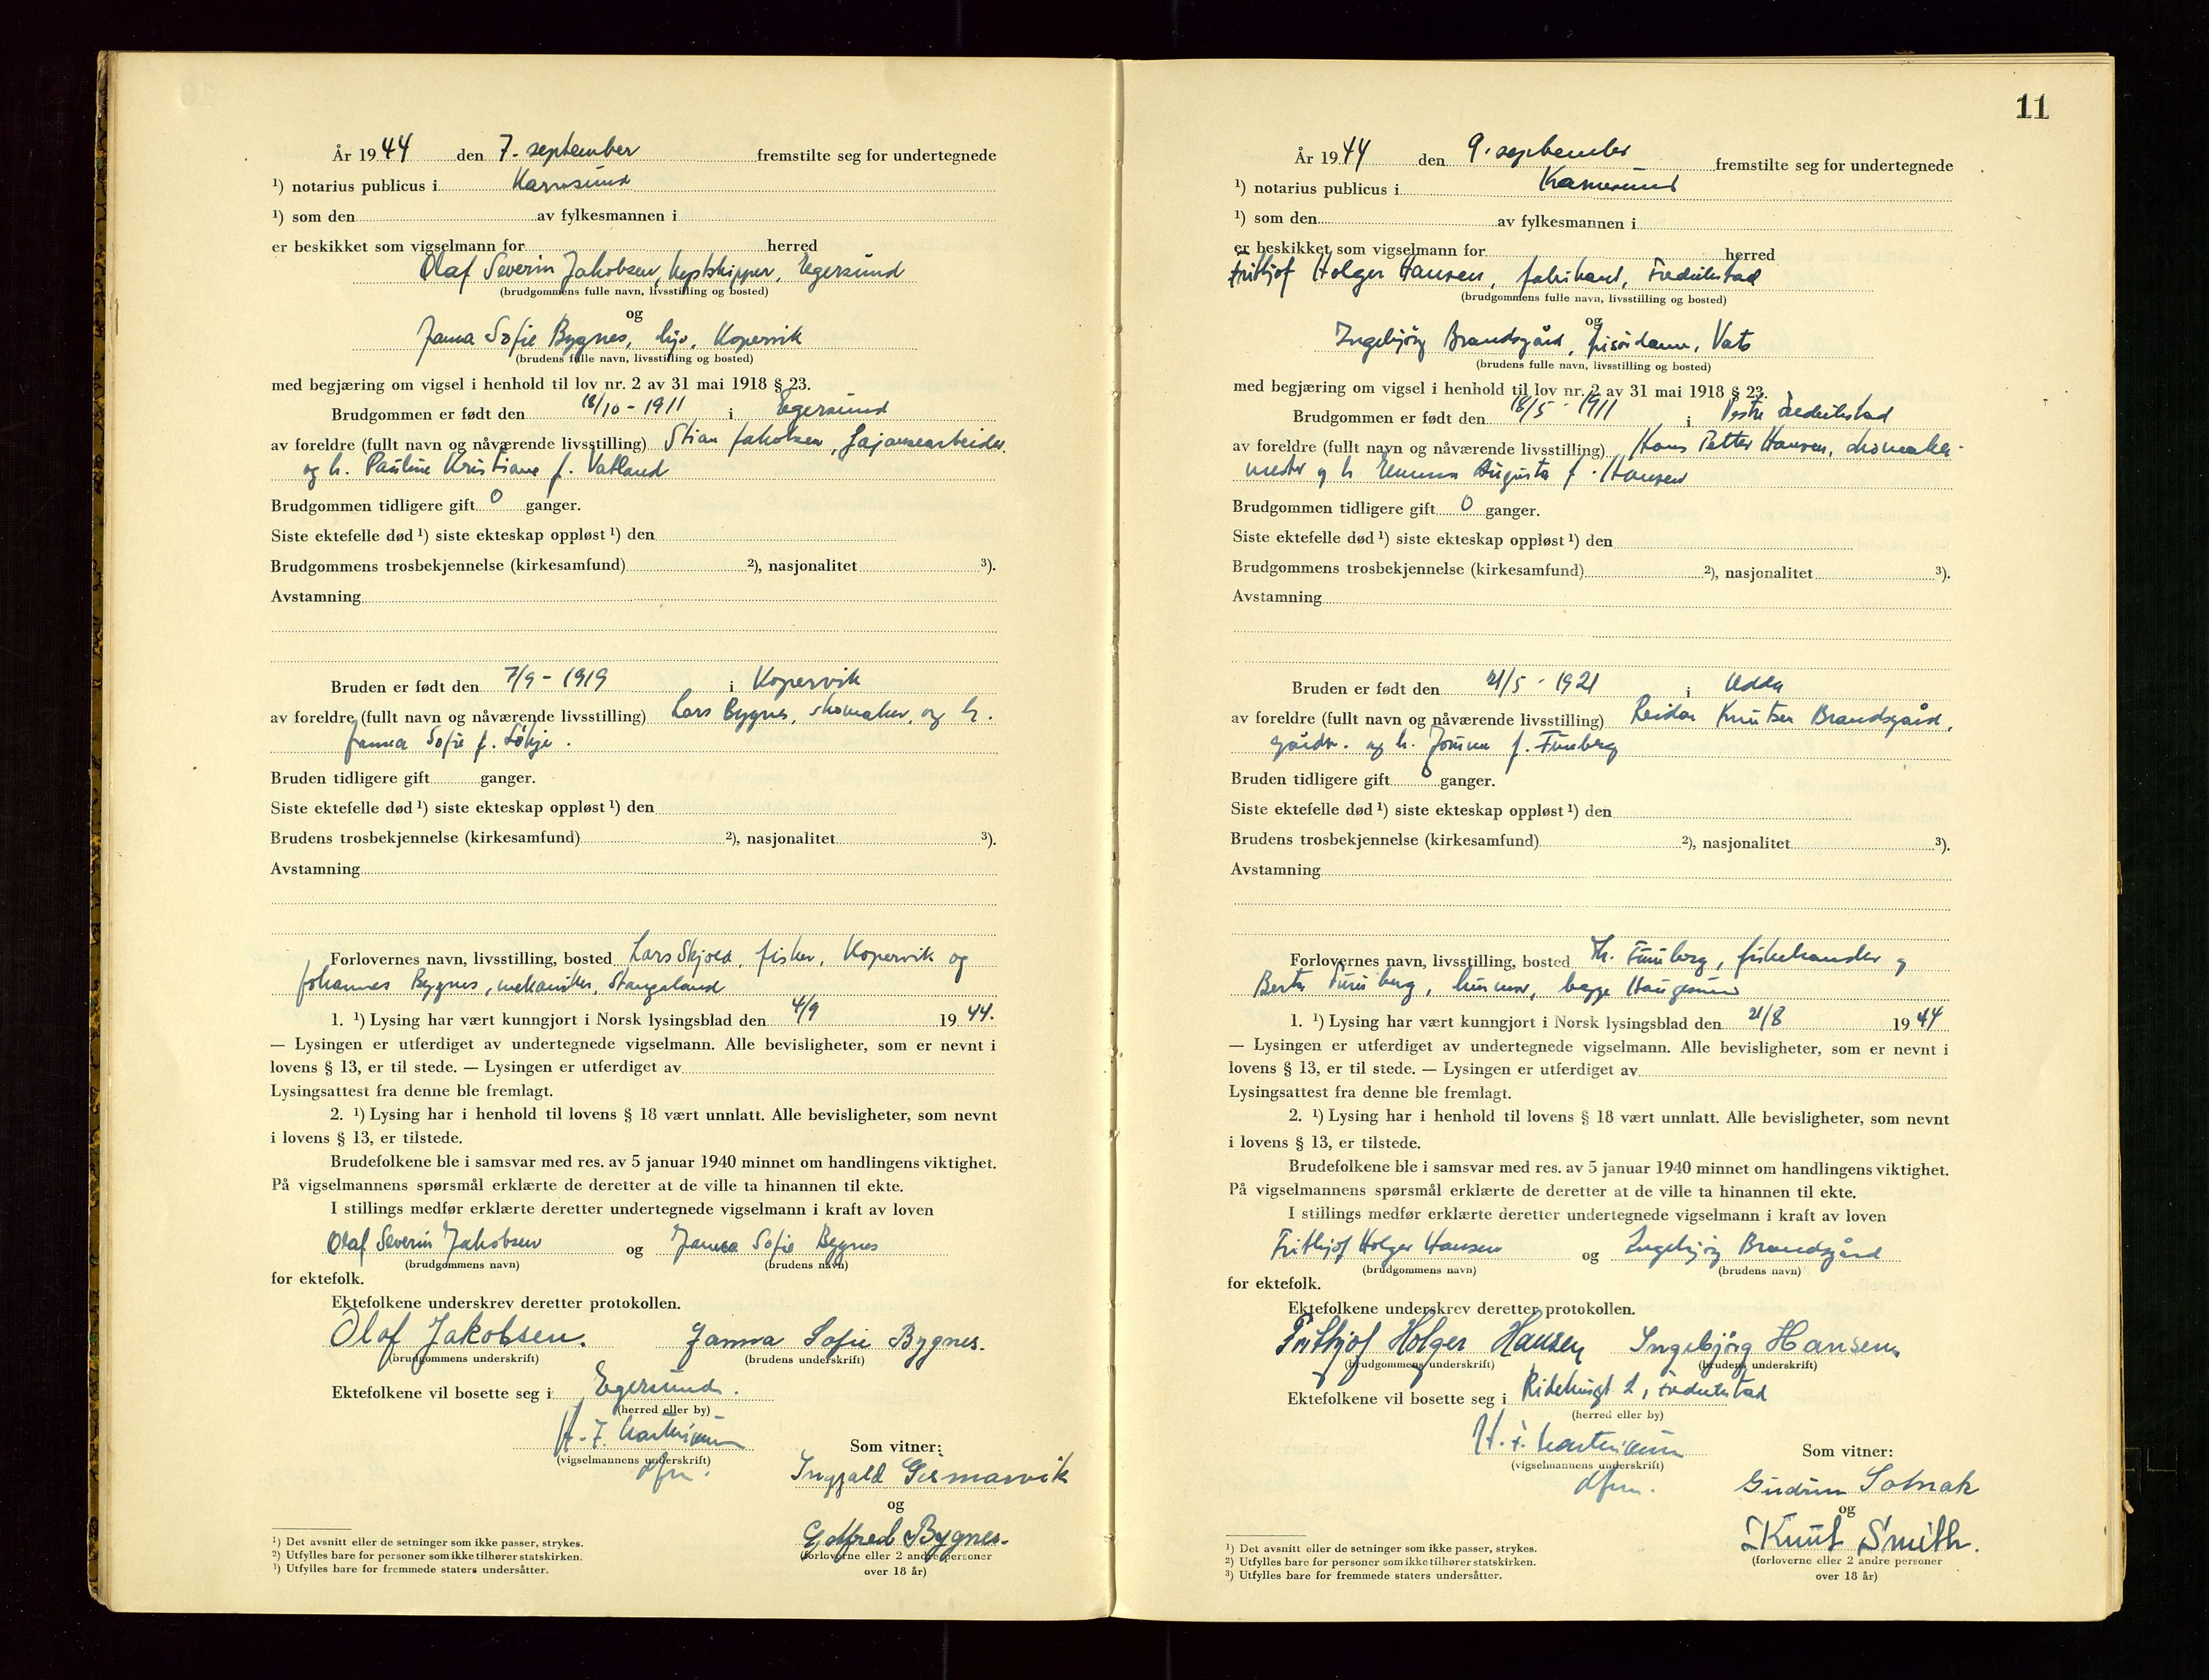 År 1944 den 7. september fremstilte seg for undertegnede
¹) notarius publicus i Karmsund
¹) som den av fylkesmannen i
er beskikket som vigselmann for herred
Olaf Severin Jakobsen, kystskipper, Egersund
(brudgommens fulle navn, livsstilling og bosted)
og
Janna Sofie Bygnes, hjv. Kopervik
(brudens fulle navn, livsstilling og bosted)
med begjæring om vigsel i henhold til lov nr. 2 av 31 mai 1918 § 23.
Brudgommen er født den 18/10 - 1911 i Egersund
av foreldre (fullt navn og nåværende livsstilling) Stian Jakobsen, fajansearbeider
og h. Pauline Kristiane f. Vatland
Brudgommen tidligere gift 0 ganger.
Siste ektefelle død ¹) siste ekteskap oppløst ¹) den
Brudgommens trosbekjennelse (kirkesamfund) ²), nasjonalitet ³).
Avstamning
Bruden er født den 7/9 - 1919 i Kopervik
av foreldre (fullt navn og nåværende livsstilling) Lars Bygnes, skomaker, og h.
Janna Sofie f.
Bruden tidligere gift ganger.
Siste ektefelle død ¹) siste ekteskap oppløst ¹) den
Brudens trosbekjennelse (kirkesamfund) ²), nasjonalitet ³).
Avstamning
Forlovernes navn, livsstilling, bosted Lars Skjold, fisker, Kopervik og
Johannes Bygnes, mekaniker, Stangeland
1. ¹) Lysing har vært kunngjort i Norsk lysingsblad den 4/9 1944.
— Lysingen er utferdiget av undertegnede vigselmann. Alle bevisligheter, som er nevnt i
lovens § 13, er til stede. — Lysingen er utferdiget av
Lysingsattest fra denne ble fremlagt.
2. ¹) Lysing har i henhold til lovens § 18 vært unnlatt. Alle bevisligheter, som nevnt
i lovens § 13, er tilstede.
Brudefolkene ble i samsvar med res. av 5 januar 1940 minnet om handlingens viktighet.
På vigselmannens spørsmål erklærte de deretter at de ville ta hinannen til ekte.
I stillings medfør erklærte deretter undertegnede vigselmann i kraft av loven
Olaf Severin Jakobsen og Janna Sofie Bygnes
(brudgommens navn) (brudens navn)
for ektefolk.
Ektefolkene underskrev deretter protokollen.
Olaf Jakobsen. Janna Sofie Bygnes.
(brudgommens underskrift) (brudens underskrift)
Ektefolkene vil bosette seg i Egersund.
(herred eller by)
H. F.
(vigselmannens underskrift)
Som vitner:
Ingvald
og
Gotfred Bygnes.
(forloverne eller 2 andre personer
over 18 år)
¹) Det avsnitt eller de setninger som ikke passer, strykes.
²) Utfylles bare for personer som ikke tilhører statskirken.
³) Utfylles bare for fremmede staters undersåtter.
11
År 1944 den 9. september fremstilte seg for undertegnede
¹) notarius publicus i Karmsund
¹) som den av fylkesmannen i
er beskikket som vigselmann for herred
Frithjof Holger Hansen, fabrikant, Fredrikstad
(brudgommens fulle navn, livsstilling og bosted)
og
Ingebjörg Brandsgård, frisördame, Vats
(brudens fulle navn, livsstilling og bosted)
med begjæring om vigsel i henhold til lov nr. 2 av 31 mai 1918 § 23.
Brudgommen er født den 18/5 - 1911 i Vestre Fredrikstad
av foreldre (fullt navn og nåværende livsstilling) Hans Petter Hansen, skomaker-
mester og h. Emma Augusta f. Hansen
Brudgommen tidligere gift 0 ganger.
Siste ektefelle død ¹) siste ekteskap oppløst ¹) den
Brudgommens trosbekjennelse (kirkesamfund) ²), nasjonalitet ³).
Avstamning
Bruden er født den 21/5 - 1921 i Odda
av foreldre (fullt navn og nåværende livsstilling) Reidar Knutsen Brandsgård,
gårdbr. og h. f. Furuberg
Bruden tidligere gift 0 ganger.
Siste ektefelle død ¹) siste ekteskap oppløst ¹) den
Brudens trosbekjennelse (kirkesamfund) ²), nasjonalitet ³).
Avstamning
Forlovernes navn, livsstilling, bosted Th. Furuberg, fiskehandler og
Berta Furuberg, husmor, begge Haugesund
1. ¹) Lysing har vært kunngjort i Norsk lysingsblad den 21/8 1944
— Lysingen er utferdiget av undertegnede vigselmann. Alle bevisligheter, som er nevnt i
lovens § 13, er til stede. — Lysingen er utferdiget av
Lysingsattest fra denne ble fremlagt.
2. ¹) Lysing har i henhold til lovens § 18 vært unnlatt. Alle bevisligheter, som nevnt
i lovens § 13, er tilstede.
Brudefolkene ble i samsvar med res. av 5 januar 1940 minnet om handlingens viktighet.
På vigselmannens spørsmål erklærte de deretter at de ville ta hinannen til ekte.
I stillings medfør erklærte deretter undertegnede vigselmann i kraft av loven
Frithjof Holger Hansen og Ingebjörg Brandsgård
(brudgommens navn) (brudens navn)
for ektefolk.
Ektefolkene underskrev deretter protokollen.
Frithjof Holger Hansen Ingebjörg Hansen
(brudgommens underskrift) (brudens underskrift)
Ektefolkene vil bosette seg i Ridehusgt 2, Fredrikstad
(herred eller by)
H. F.
(vigselmannens underskrift)
Som vitner:
Gudrun
og
Knut Smith.
(forloverne eller 2 andre personer
over 18 år)
¹) Det avsnitt eller de setninger som ikke passer, strykes.
²) Utfylles bare for personer som ikke tilhører statskirken.
³) Utfylles bare for fremmede staters undersåtter.